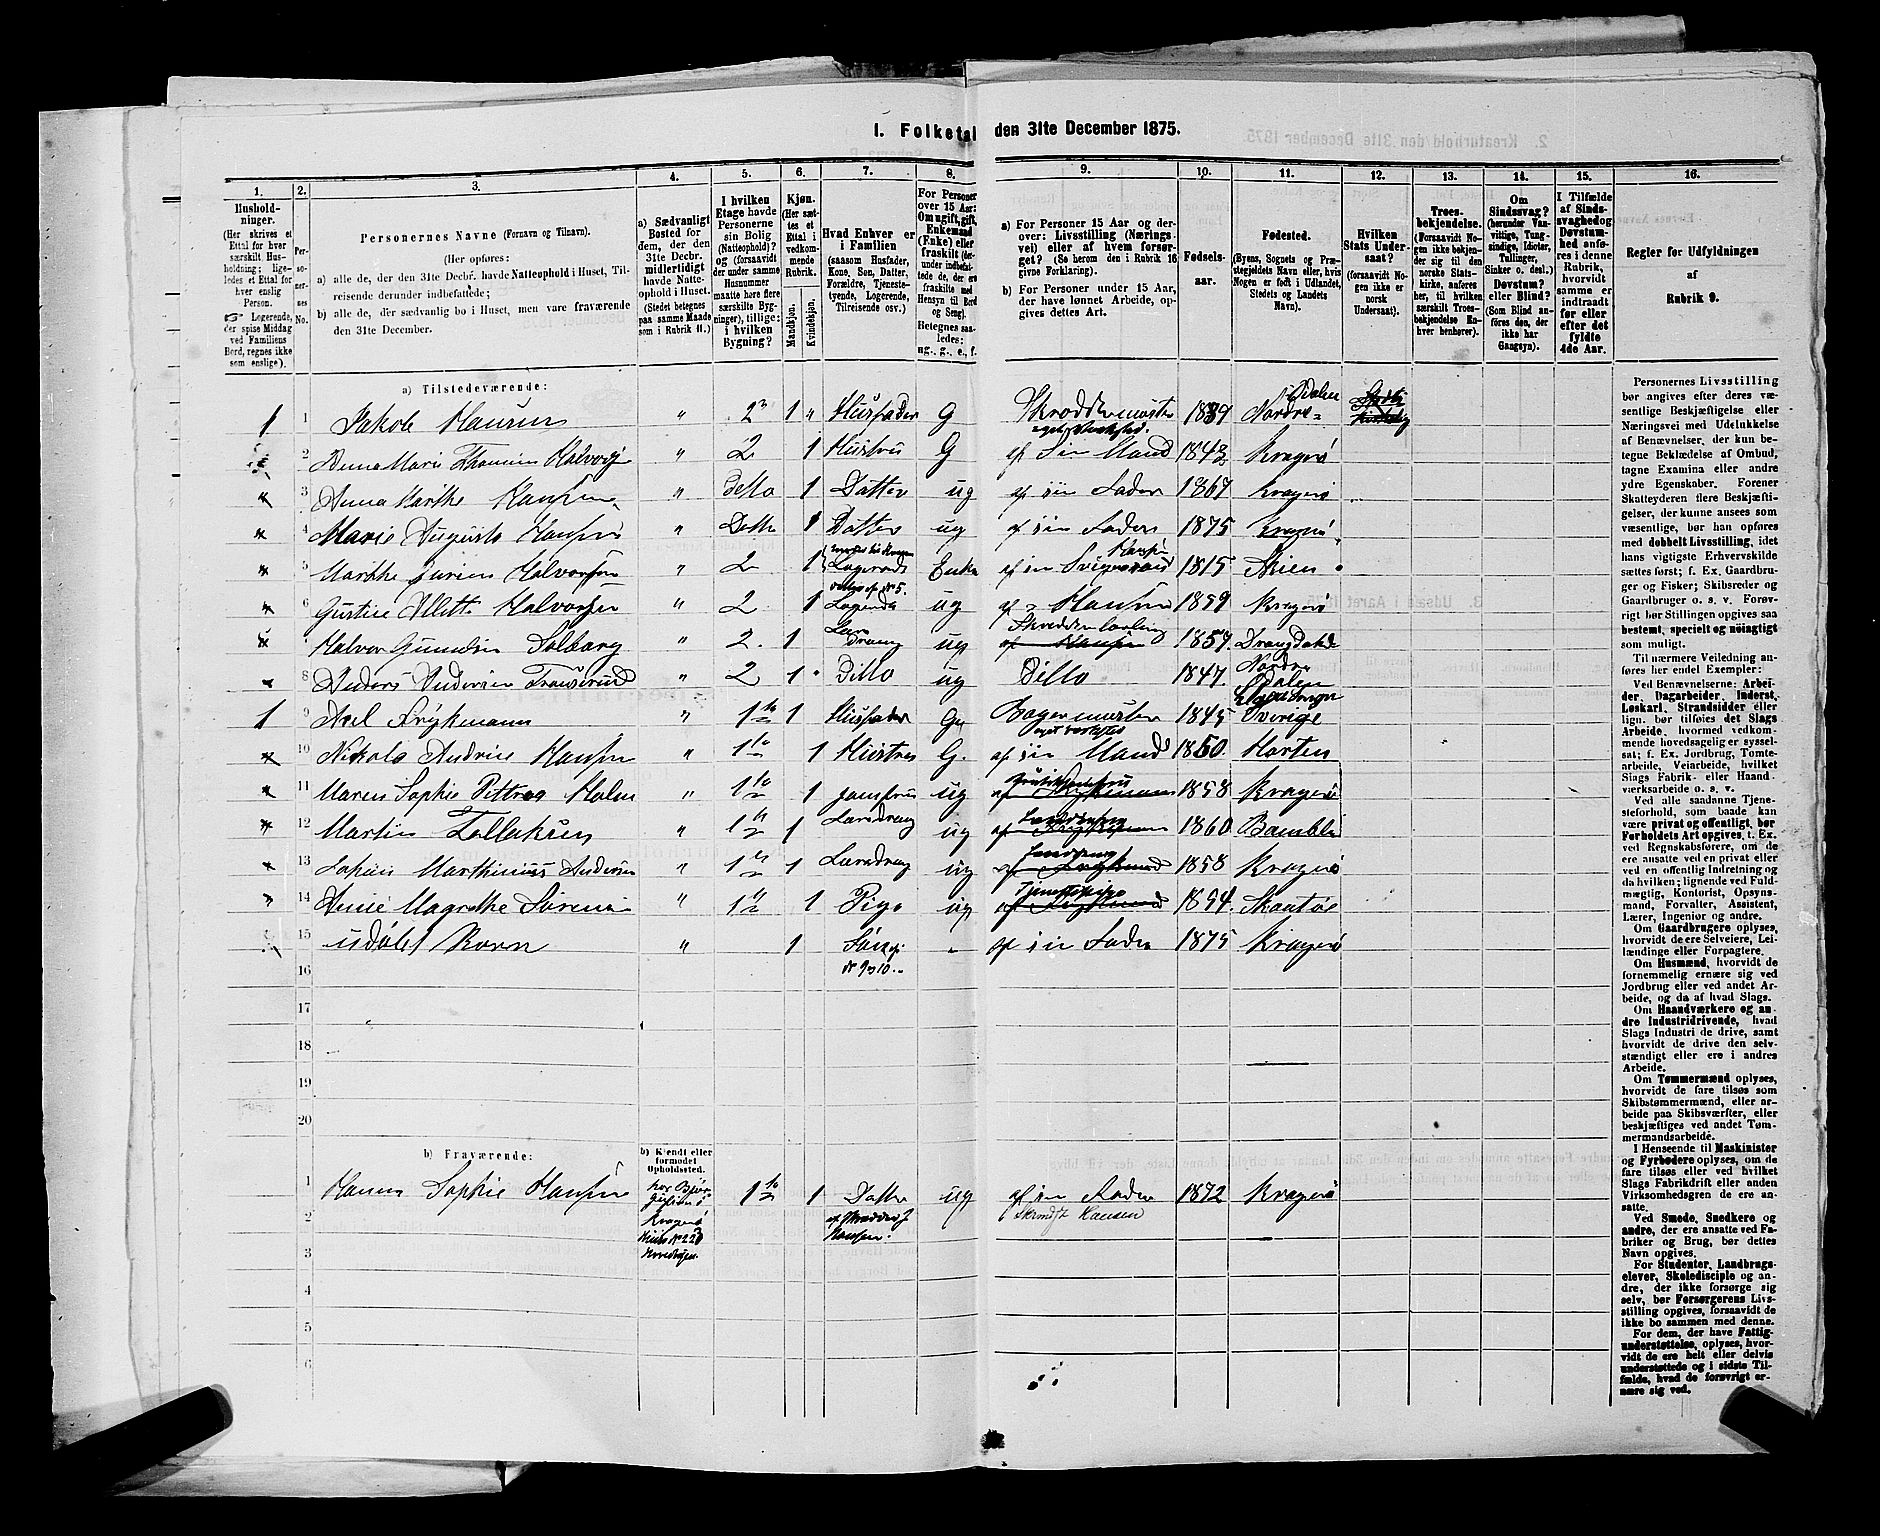 1. Folketal den 31te December 1875.
1. 2. 3. 4. 5. 6. 7. 8. 9. 10. 11. 12. 13. 14. 15. 16.
Hushold-
ninger.
(Her skrives et
Ettal for hver
særskilt Hus-
holdning; lige-
ledes et Ettal for
hver enslig
Person.
Logerende,
der spise Middag
ved Familiens
Bord, regnes ikke
som enslige).
Per-
so-
ner-
nes
No.
Personernes Navne (Fornavn og Tilnavn).
(Her opføres:
a) alle de, der den 31te Decbr. havde Natteophold i Huset, Til-
reisende derunder indbefattede;
b) alle de, der sædvanlig bo i Huset, men vare fraværende
den 31te December.
a) Sædvanligt
Bosted for
dem, der den
31te Decbr.
midlertidigt
havde Natte-
ophold i Huset.
(Stedet betegnes
paa samme Maade
som i Rubrik 11.)
I hvilken
Etage havde
Personerne
sin Bolig
(Natteophold)?
og (forsaavidt
der under samme
Husnummer
maatte høre flere
særskilte Byg-
ninger), tillige:
i hvilken
Bygning?
Kjøn.
(Her sæt-
tes et
Ettal i
vedkom-
mende
Rubrik.
Mandkjøn.
Kvindekjøn.
Hvad Enhver er
i Familien
(saasom Husfader,
Kone, Søn, Datter,
Forældre, Tjeneste-
tyende, Logerende,
Tilreisende osv.)
For Personer
over 15 Aar:
Om ugift, gift,
Enkemand
(Enke) eller
fraskilt (der-
under indbefat-
tede de, der ere
fraskilte med
Hensyn til Bord
og Seng).
Betegnes saa-
ledes:
ug., g., e., f.
a) For Personer 15 Aar og der-
over: Livsstilling (Nærings-
vei) eller af hvem forsør-
get? (Se herom den i Rubrik 16
givne Forklaring).
b) For Personer under 15 Aar,
der have lønnet Arbeide, op-
gives dettes Art.
Fødsels-
aar.
Fødested.
(Byens, Sognets og Præ-
stegjeldets Navn eller, hvis
Nogen er født i Udlandet,
Stedets og Landets
Navn).
Hvilken
Stats Under-
saat?
(forsaavidt No-
gen ikke er
norsk
Undersaat).
Troes-
bekjendelse.
(Forsaavidt No-
gen ikke bekjen-
der sig til den
norske Stats-
kirke, anføres
her, til hvilken
særskilt Troes-
bekjendelse En-
hver henhører).
Om
Sindssvag?
(herunder Van-
vittige, Tung-
sindige, Idioter,
Tullinger,
Sinker o. desl.)
Døvstum?
eller Blind?
(Som Blind an-
føres den, der
ikke har
Gangsyn).
I Tilfælde
af Sinds-
svaghed og
Døvstum-
hed anfø-
res i denne
Rubrik,
hvorvidt
samme er
indtraadt
før eller
efter det
fyldte
4de Aar.
Regler for Udfyldningen
af
Rubrik 9.
a) Tilstedeværende:
1 1 Jakob Hansen " 2 1 " Husfader G Skræddermester eget Værksted. 1839 Nordre Odalen
2 Anna Marie Halvors " 2 1 Hustru G af sin Mand 1843 Kragerø
3 Anna Marthe Hansen " Ditto 1 Datter ug af sin Fader 1867 Kragerø
4 Marie Augusta Hansen " Ditto 1 Datter ug af sin Fader 1875 Kragerø
5 Marthe Halvorsen " 2 1 Logerende Enke af sin Svigersøn Hansen 1815 Skien
6 Halvorsen " 2 1 Logerende ug af Hansen 1859 Kragerø
7 Halvor Solberg " 2. 1 Læredreng ug Skrædderlærling 1857. Drangedal
8 Anders Andersen " 2 1 Ditto ug Ditto 1847. Nordre Odalen
1 9 Axel Frykmann " 1ste 1 Husfader G Bagermester eget Værksted 1845 Sverige
10 Nikola Andrine Hansen " 1ste 1 Hustru G. af sin Mand 1850. Horten
11 Maren Sophie Holm " 1ste 1 Jomfru ug 1858 Kragerø
12 Martin Tallaksen " 1ste 1 Læredreng ug 1860 Bamble
13 Marthinius Andersen " 1ste 1 Læredreng ug 1858 Kragerø
14 Anne Magrethe " 1ste 1 Pige ug Tjenestepige 1854. Skaatø
15 Udøbt Barn " 1 Søn af No 9 og 10. af sin Fader 1875 Kragerø
16
17
18
19
20
b) Fraværende:
b) Kjendt eller
formodet
Opholdssted.
1 Hanna Sophie Hansen 1ste 1 Datter af Skrædder J Hansen. ug af sin Fader Skrædder Hansen 1872 Kragerø
2
3
4
5
6
Personernes Livsstilling
bør angives efter deres væ-
sentlige Beskjæftigelse eller
Næringsvei med Udelukkelse
af Benævnelser, der kun be-
tegne Beklædelse af Ombud,
tagne Examina eller andre
ydre Egenskaber. Forener
Skatteyderen flere Beskjæfti-
gelser, der kunne ansees som
væsentlige, bør han opføres
med dobbelt Livsstilling, idet
hans vigtigste Erhvervskilde
sættes først; f. Ex. Gaardbru-
ger og Fisker; Skibsreder og
Gaardbruger o. s. v. Forøv-
rigt bør Stillingen opgives saa
bestemt, specielt og nøiagtigt
som muligt.
Til nærmere Veiledning an-
føres her endel Exempler:
Ved Benævnelserne: Arbei-
der, Dagarbeider, Inderst,
Løskarl, Strandsidder eller
lign. bør tilføies det Slags
Arbeide, hvormed vedkom-
mende hovedsagelig er syssel-
sat; f. Ex. Jordbrug, Tomte-
arbeide, Veiarbeide, hvilket
Slags Fabrik- eller Haand-
værksarbeide o. s. v.
Ved alle saadanne Tjene-
steforhold, som baade kan
være privat og offentligt, bør
Forholdets Art opgives, t. Ex.
ved Regnskabsførere, om de
ere ansatte ved en privat eller
ved en offentlig Indretning og
da hvilken; lignende ved Fuld-
mægtig, Kontorist, Opsyns-
mand, Forvalter, Assistent,
Lærer, Ingeniør og andre.
Om Gaardbrugere oplyses,
hvorvidt de ere Selveiere, Lei-
lændinge eller Forpagtere.
Om Husmænd, hvorvidt de
fornemmelig ernære sig ved
Jordbrug eller ved andet Ar-
beide, og da af hvad Slags.
Om Haandværkere og an-
dre Industridrivende, hvad
Slags Industri de drive, samt
hvorvidt de drive den selv-
stændigt eller ere i andres
Arbeide.
Om Tømmermænd oplyses,
hvorvidt de fare tilsøs som
Skibstømmermænd, eller ar-
beide paa Skibsværfter, eller
beskjæftiges ved andet Tøm-
mermandsarbeide.
I Henseende til Maskinister
og Fyrbødere oplyses, om de
fare tilsøs eller ved hvilket
Slags Fabrikdrift eller anden
Virksomhedsgren de ere an-
satte.
Ved Smede, Snedkere og
andre, der ere ansatte ved Fa-
briker og Brug, bør dettes
Navn opgives.
For Studenter, Landbrugs-
elever, Skoledisciple og an-
dre, der ikke forsørge sig
selv, bør Forsørgerens Livs-
stilling opgives, forsaavidt de
ikke bo sammen med denne.
For dem, der have Fattig-
understøttelse, oplyses, hvor-
vidt de ere helt eller delvis
understøttede og i sidste Til-
fælde, hvad de forøvrigt er-
nære sig ved.